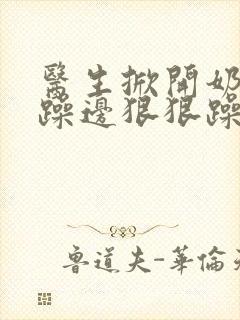 醫生掀開奶
躁邊狠狠躁
魯道夫-華倫